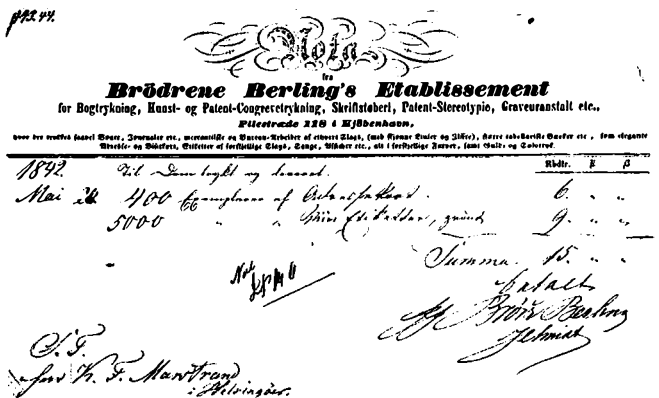 Nota
fra
Brödrene Berling's Etablissement
for Bogtrykning, Kunst- og Patent-Congrevetrykning, Skriftstøberi, Patent-Stereotypie, Graveuranstalt etc.,
Pilestræde 118 i Kjöbenhavn,
hvor der trykkes saavel Bøger, Journaler etc., mercantilske og Bureau-Arbeider af ethvert Slags, (med skjønne Linier og Zifre), større tabellariske Værker etc., som elegante
Adresse- og Visitkort, Etiketter af forskjellige Slags, Sange, Afficher etc., alt i forskjellige Farver, samt Guld- og Sølvtryk.
Rbdlr. ꝟ ß
1842. Til Dem trykt og leveret.
Mai 400 Exemplarer af Adressekort. 6. " "
5000 " " Etiketter, 9. " "
Summa. 15. " "
betalt
Brödr Berling
Schmidt
S. T.
Herr K. F. Marstrand
i Helsingöer.